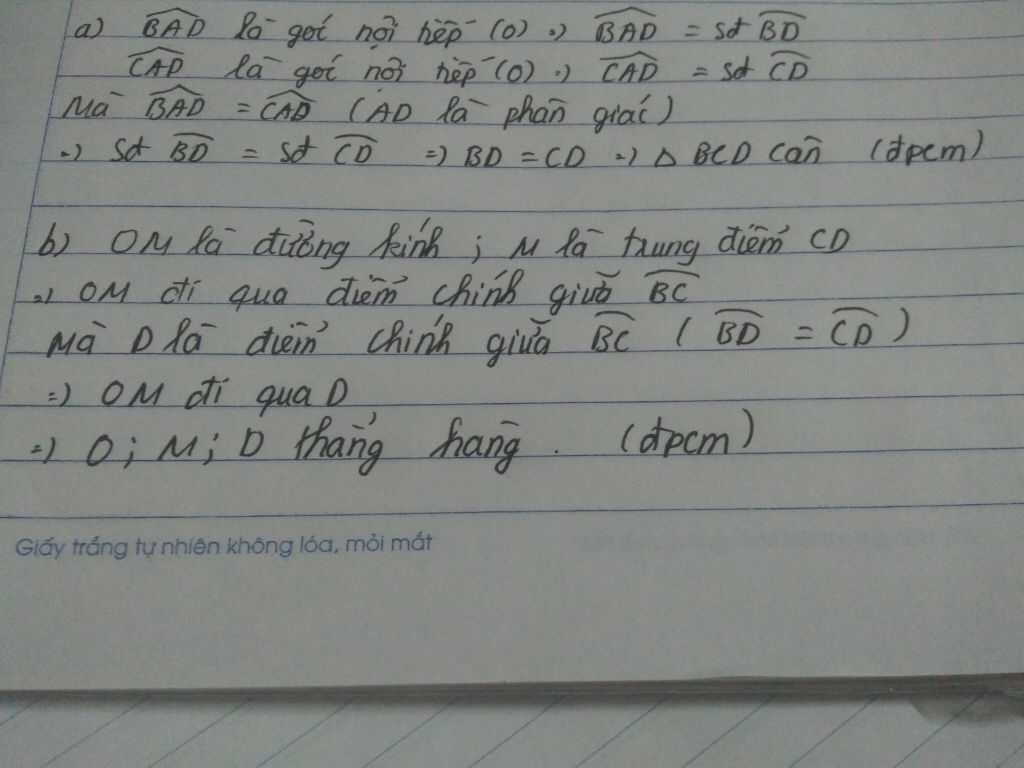 a) BAD là góc nội tiếp (O) => BAD = sđ BD
CAD là góc nội tiếp (O) => CAD = sđ CD
Mà BAD = CAD (AD là phân giác)
=> sđ BD = sđ CD => BD = CD => Δ BCD cân (đpcm)
b) OM là đường kính ; M là trung điểm CD
=> OM đi qua điểm chính giữa BC
Mà D là điểm chính giữa BC ( BD = CD )
=> OM đi qua D
=> O ; M ; D thẳng hàng . (đpcm)
Giấy trắng tự nhiên không lóa, mỏi mắt